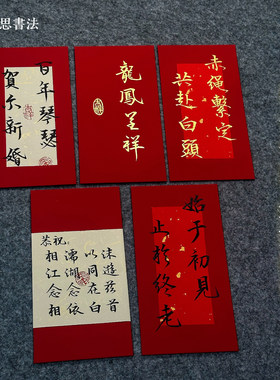 思書法
百年琴瑟
賀尔新婚
龍鳳呈祥
赤繩繫定
共赴白頭
恭祝,
相濡以沫
江湖同遊
念念在茲
相依白首
始于初見
止於終老